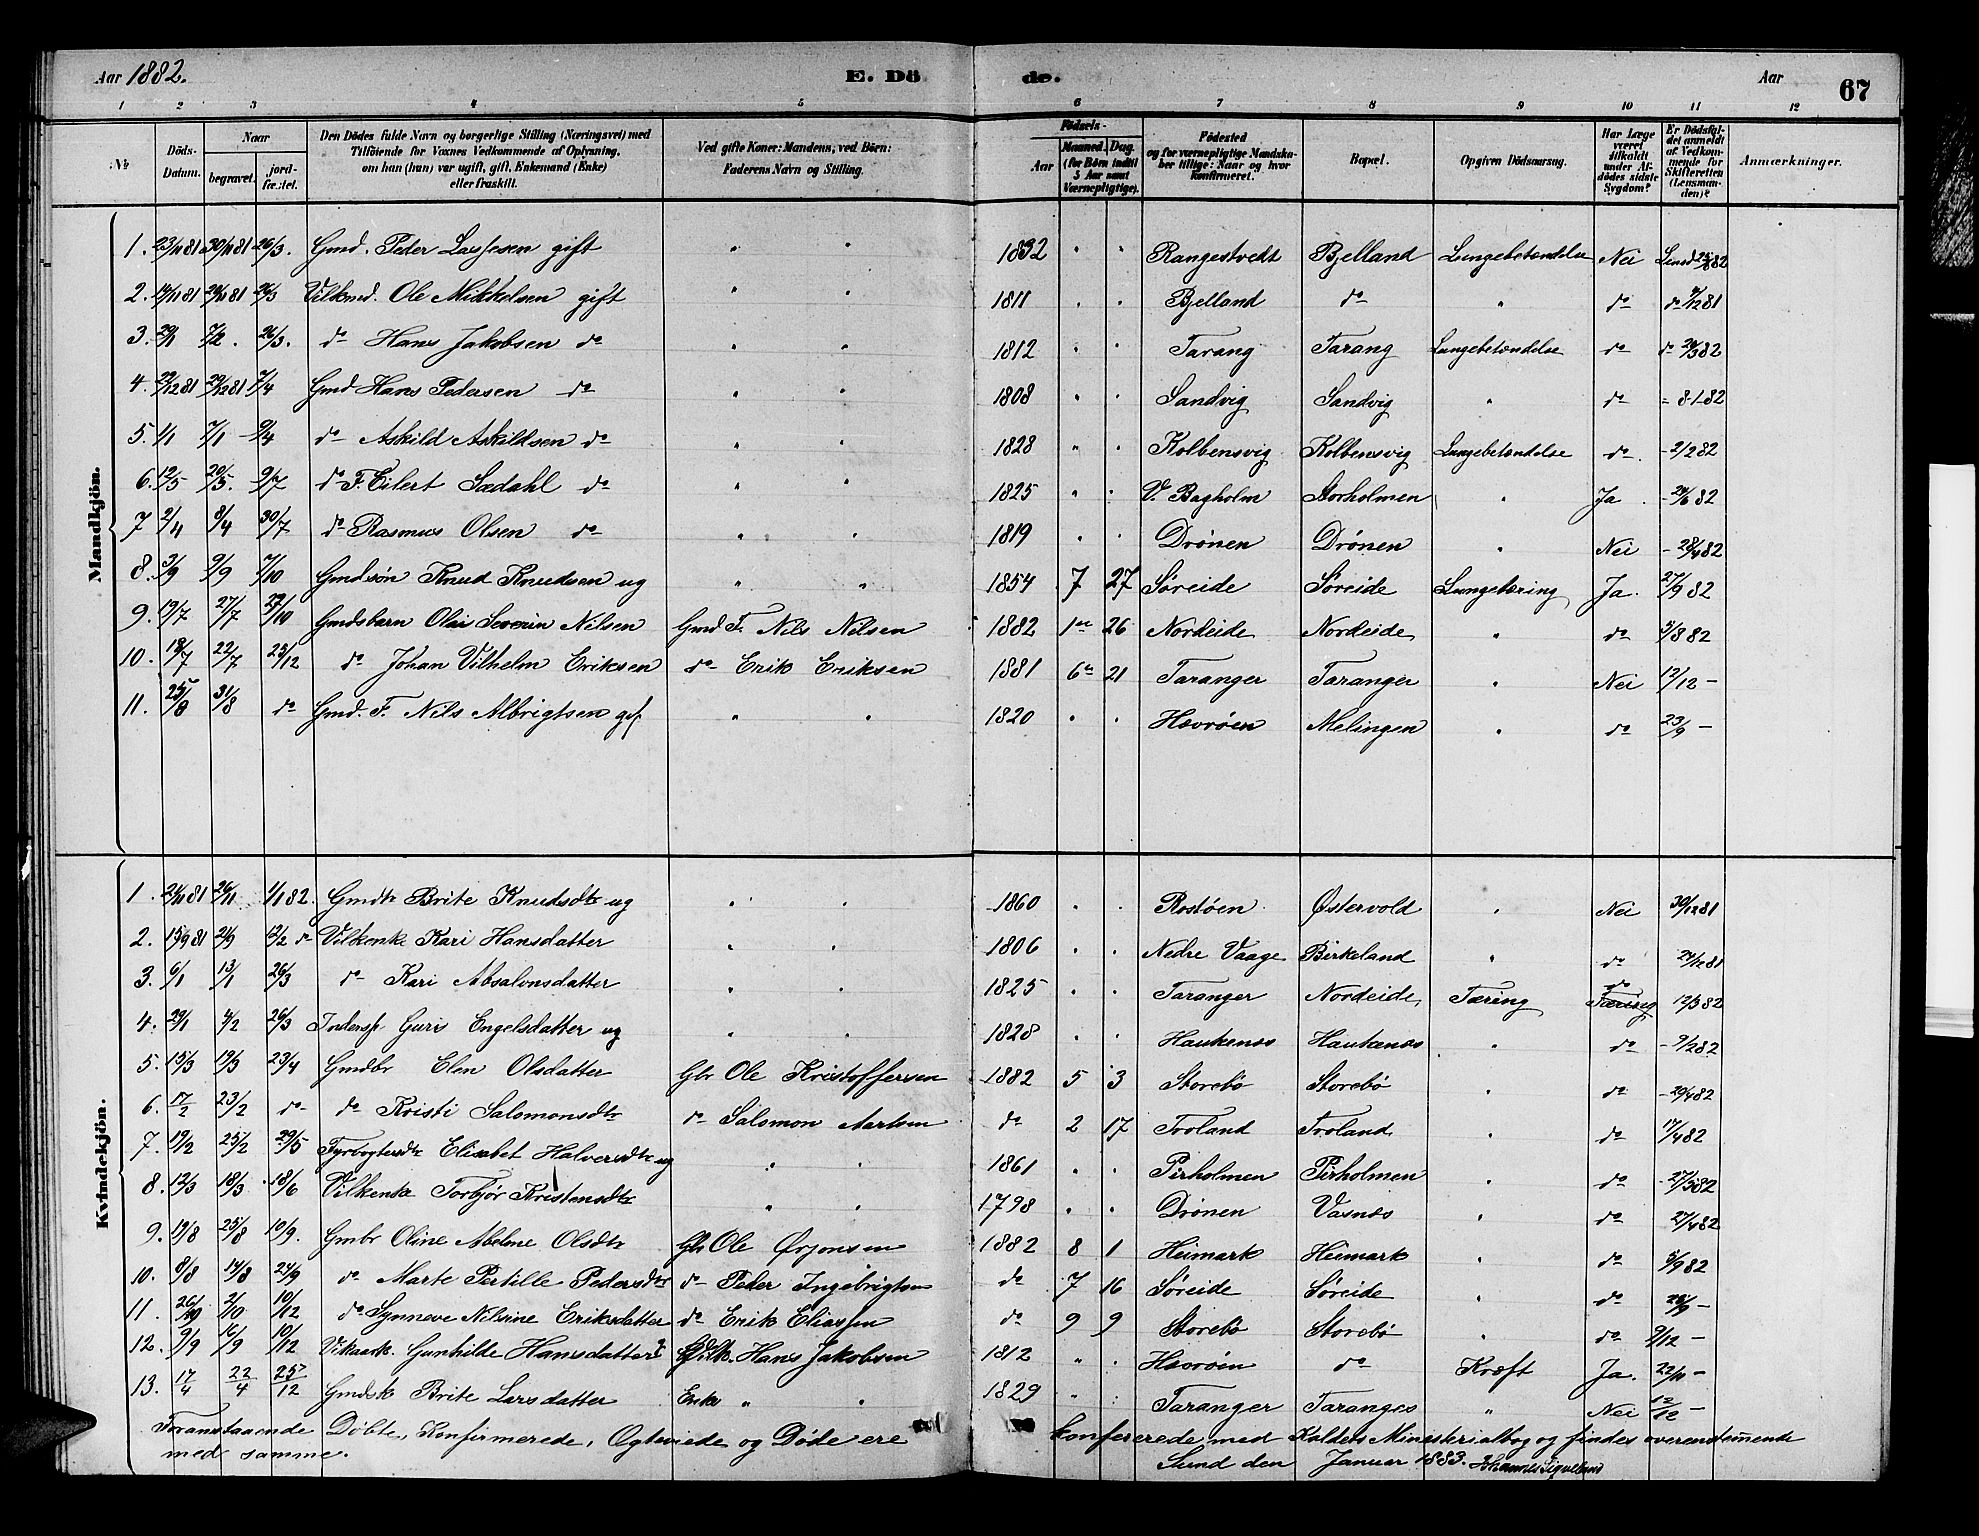 Aar 1882. E. Dö de. Aar 67
1 2 3 4 5 6 7 8 9 10 11 12
No
Döds-Datum.
Naar
begravet.
jord-fæstet.
Den Dödes fulde Navn og borgerlige Stilling (Næringsvei) med
Tilföiende for Voxnes Vedkommende af Oplysning,
om han (hun) var ugift, gift, Enkemand (Enke)
eller fraskilt.
Ved gifte Koner: Mandens, ved Börn:
Faderens Navn og Stilling.
Födsels-
Aar
Maaned. Dag.
(for Börn indtil
5 Aar samt
Værnepligtige).
Födested
og for værnepligtige Mandska-
ber tillige: Naar og hvor
konfirmeret.
Bopæl.
Opgiven Dödsaarsag.
Har Læge
været
tilkaldt
under Af-
dödes sidste
Sygdom?
Er Dödsfal-
det anmeldt
af Vedkom-
mende for
Skifteretten
(Lensman-
den)?
Anmærkninger.
Mandkjön.
1. 23/11 81 30/11 81 26/3. Gmd. Peder Lassesen gift " " 1832 " " Rangestvedt Bjelland Lungebetændelse Nei
2. 14/11 81 26/3 Vilkmd. Ole Mikkelsen gift " " 1811 " " Bjelland do " do do 9/12 81
3. 7/2. 26/3. do Hans Jakobsen do " " 1812 " " Tarang Tarang Lungebetændelse do do 26/3 82
4. 22/12 81 29/12 81 7/4 Gmd Hans Pedersen do " " 1808 " " Sandvig Sandvig " do = 8-1-82
5. 1/1 7/1 9/4 do Askild Askildsen do " " 1828 " " Kolbensvig Kolbensvig Lungebetændelse do - 2/2 82
6. 12/5 20/5. 9/7 do F. Eilert Sædahl do " " 1825 " " V. Bagholm Storholmen " Ja - 24/6 82
7 2/4 8/4 30/7 do Rasmus Olsen do " " 1819 " " Drönen Drönen " Nei - 28/4 82
8. 3/9 9/9 7/10 Gmdsön Knud Knudsen ug " " 1854 7 27 Söreide Söreide Lungetæring Ja. 27/9 82
9. 19/7 27/7 29/10 Gmdsbarn Olai Severin Nilsen Gmd F. Nils Nilsen 1882 1 26 Nordeide Nordeide " do 5/8 82
10. 18/7 22/7 25/12 do Johan Vilhelm Eriksen do Erik Eriksen 1881 6 21 Taranger Taranger " Nei 12/12 -
11. 25/8 31/8 do Gmd. F. Nils Albrigtsen gif " " 1820 " " Hevröen Melingen " do 23/9 -
Kvindekjön.
1. 24/11 81 26/11 1/1 82. Gmdtr Brite Knudsdtr ug " " 1860 " " Rostöen Østervold " Nei 30/12 81
2. 15/9 81 21/9 12/2 do Vilkenke Kari Hansdatter " " 1806 " " Nedre Vaage Birkeland " do 24/12 81
3. 6/1 13/1 26/3 do Kari Absalonsdatter " " 1825 " " Taranger Nordeide Tæring do Tæring 12/3 82
4. 29/1 4/2 26/3 Indersp. Guri Engelsdatter ug " " 1828 " " Haukenæs Haukenæs " do - 9/2 82
5. 15/3 19/3 23/4 Gmdbr Elen Olsdatter Gbr Ole Kristoffersen 1882 5 3 Storebö Storebö " do - 29/4 82
6. 17/2 23/2 do do Kristi Salomonsdtr do Salomon Aartsen do 2 17 Troland Troland " do 17/4 82
7. 19/2 25/2 29/5 Fyrvogtersdtr Elisabet Halversdtr ug " " 1861 " " Pirholmen Pirholmen " do - 27/3 82
8. 12/3 18/3 18/6 Vilkenke Torbjör Kristensdtr " " 1798 " " Drönen Vasnæs " do 27/4 82
9. 19/8 25/8 10/9. Gmbr Oline Abeline Olsdtr Gbr Ole Ørjansen 1882 8 1 Heimark Heimark " do 5/9 82
10. 8/8 14/8 24/9 do Marte Pertille Pedersdtr do Peder Ingebrigtsen do 7 16 Söreide Söreide " do
11. 2/10 10/12 do Synneve Nilsine Eriksdatter do Erik Eliassen do 9 9 Storebö Storebö " do 9/12 -
12. 9/9 16/9 10/12 Vikaark. Gunhilde Hansdatter Vilk. Hans Jakobsen 1812 " " Hevröen do Kræft Ja. 22/11 -
13. 17/4 22/4 25/12 Gmdsk Brite Larsdatter Enke " " 1829 " " Taranger Taranger " Nei 12/12 -
Foranstaaende Döbte, Konfirmerede, Ogteviede og Döde ere konfererede med Kaldets Ministerialbog og findes overenstemmende
med samme. Sund den Januar 1883. Johannes Sigvelland